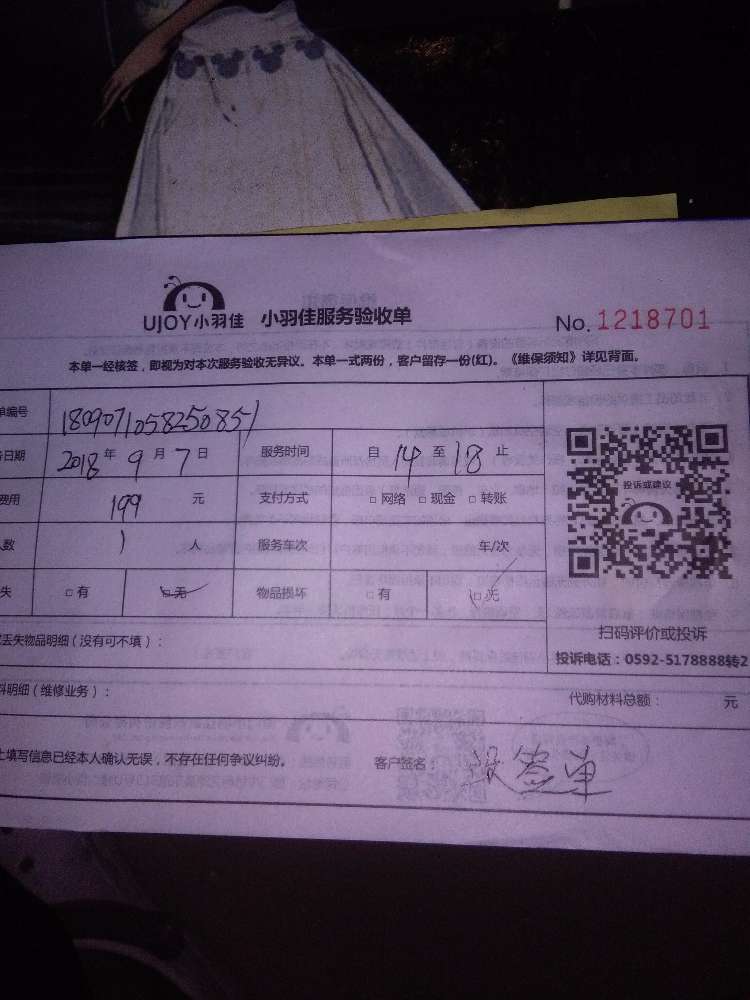 UJOY小羽佳 小羽佳服务验收单 No. 1218701
本单一经核签，即视为对本次服务验收无异议。本单一式两份，客户留存一份(红)。《维保须知》详见背面。
单编号 1809071058250851
务日期 2018年9月7日 服务时间 自14至18止
费用 199 元 支付方式 □网络 □现金 □转账
人数 1 人 服务车次 车/次
失 □有 □无 物品损坏 □有 □无
投诉或建议
扫码评价或投诉
投诉电话：0592-5178888转2
丢失物品明细（没有可不填）：
料明细（维修业务）： 代购材料总额： 元
上填写信息已经本人确认无误，不存在任何争议纠纷。 客户签名： 没签单